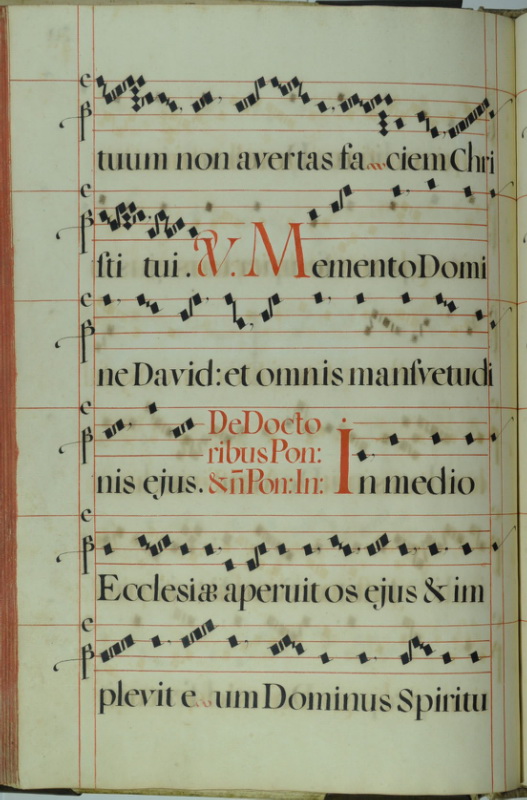 tuum non avertas faciem Chri
sti tui. V. Memento Domi
ne David: et omnis mansvetudi
nis ejus. De Docto
ribus Pon:
& n̄ Pon: In: In medio
Ecclesiæ aperuit os ejus & im
plevit eum Dominus Spiritu